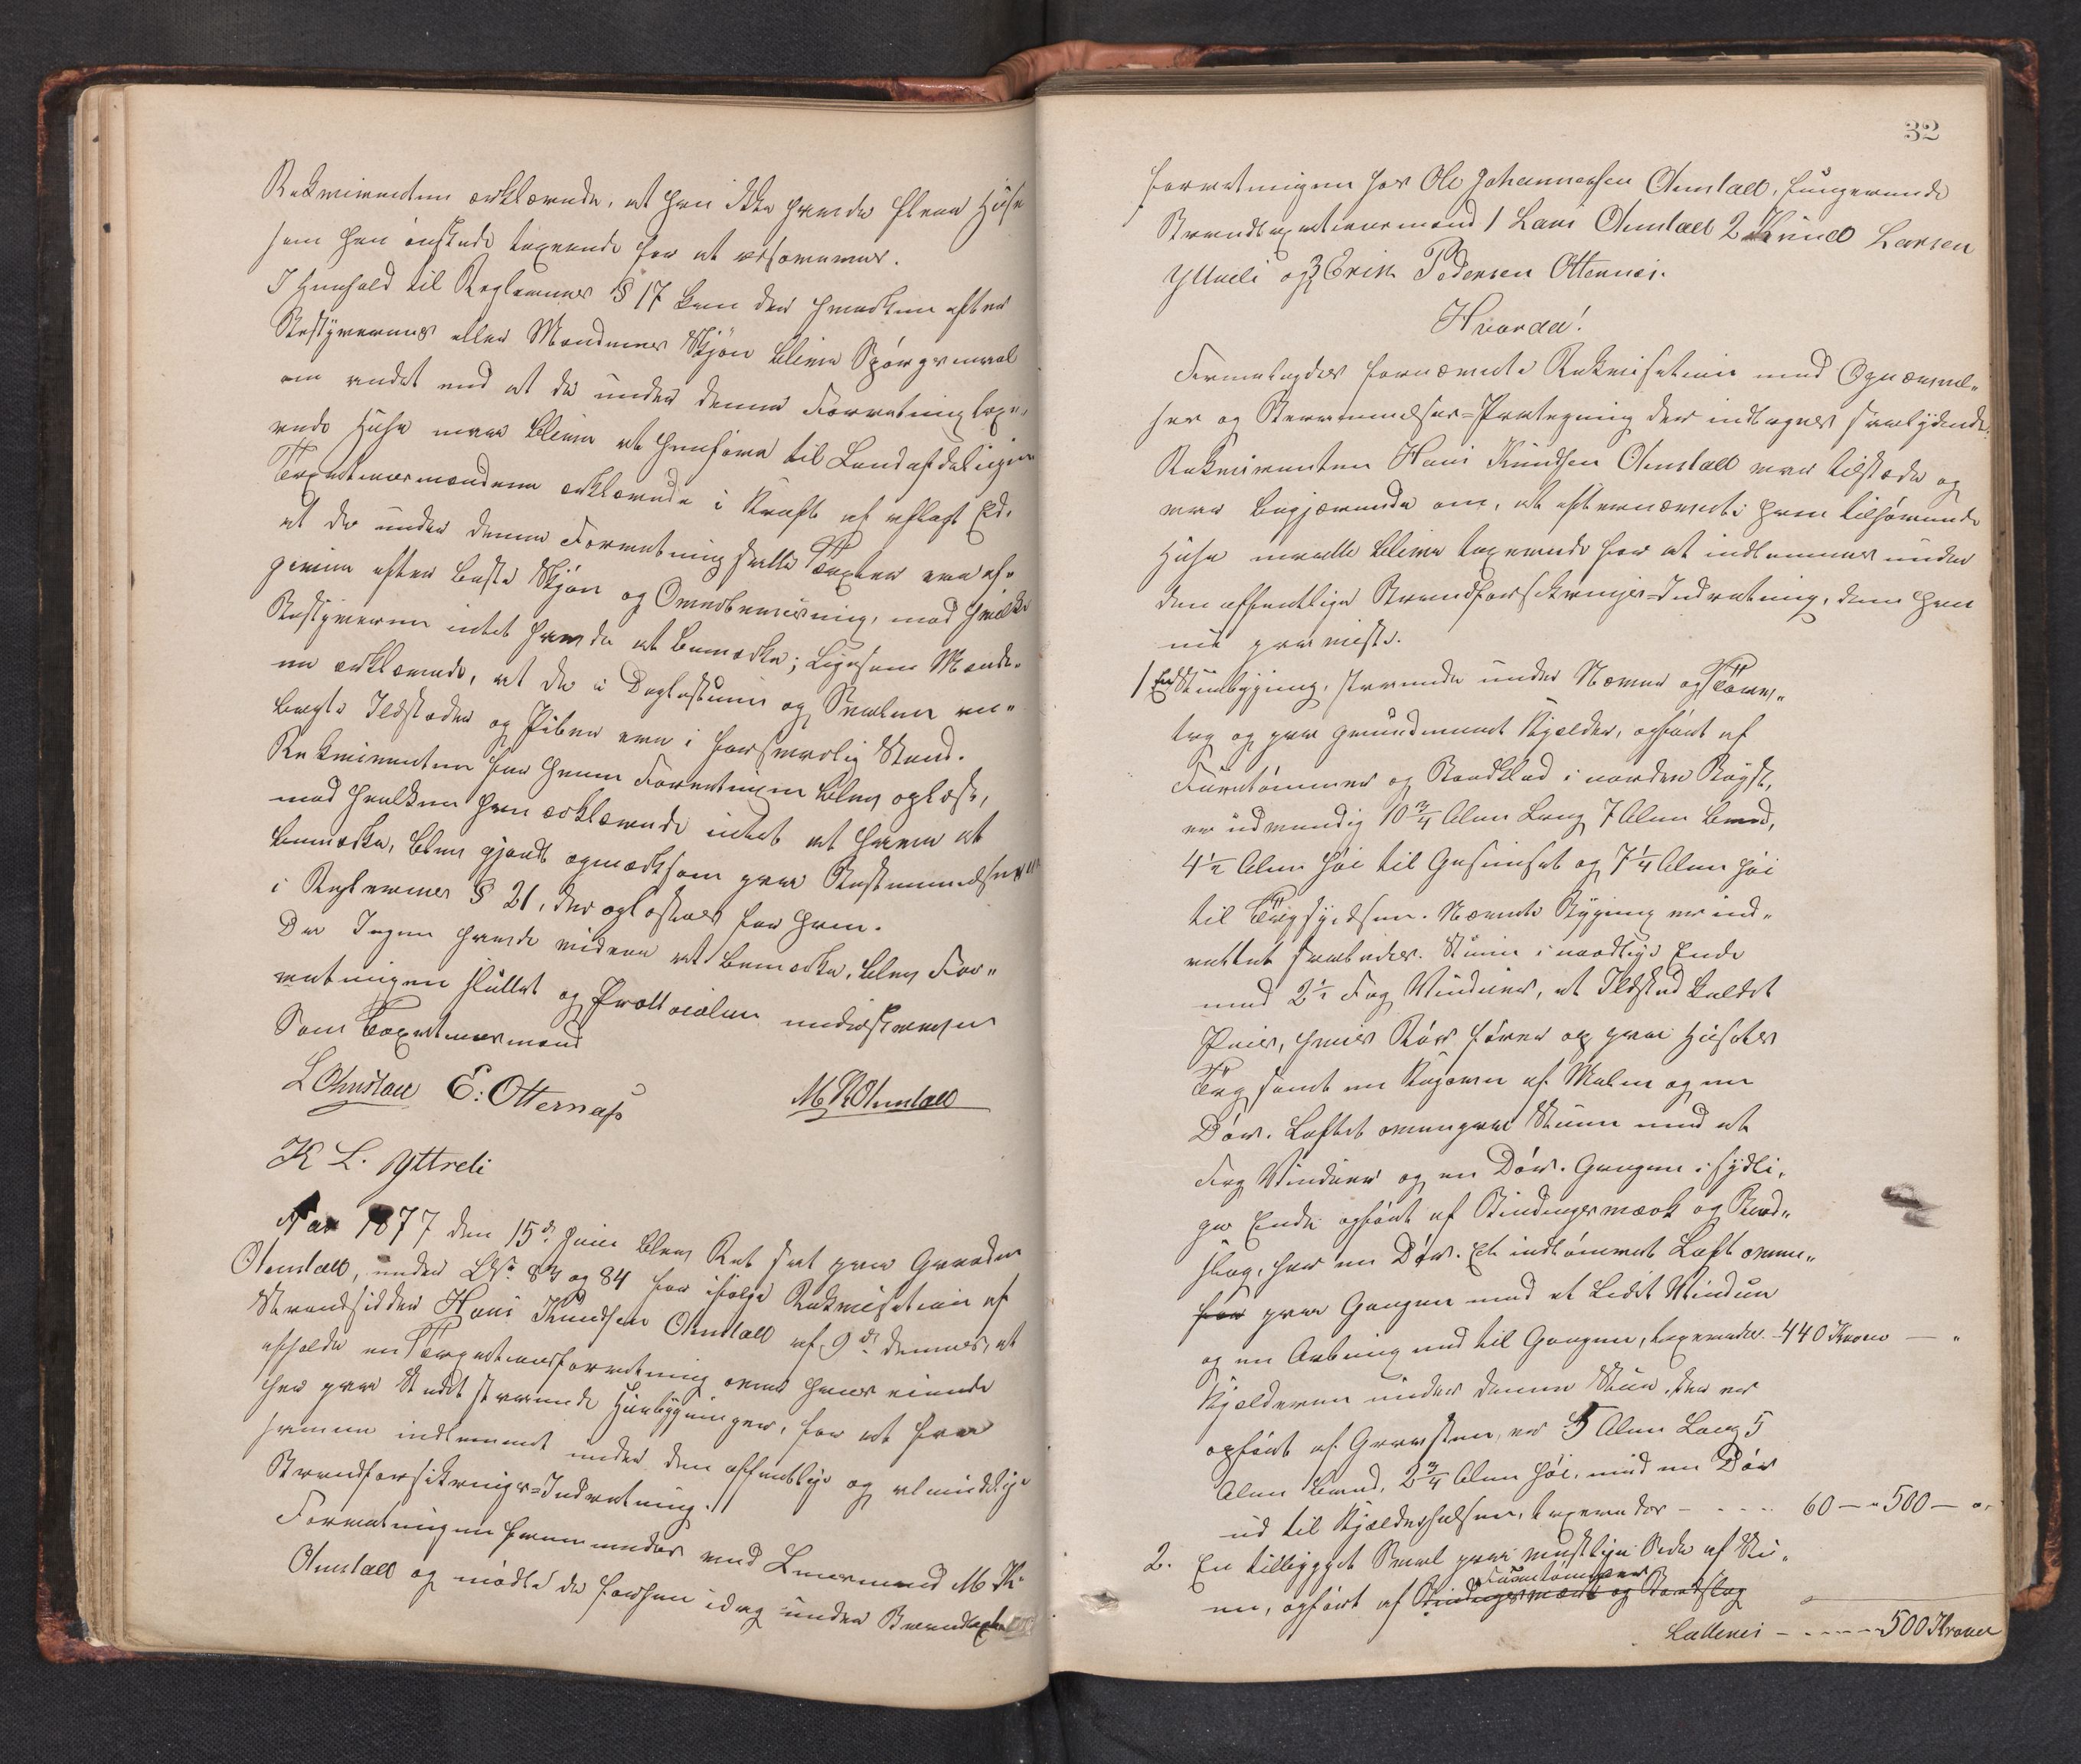 Rekvirenten erklærede, at han ikke havde flere Huse
som han önskede taxerede for at assureres.
I Henhold til Reglernes § 17 kan der hverken efter
Bestyrerens eller Mændenes Skjön blive Spörgsmaal
om andet end at de under denne Forretning taxe-
rede Huse maa blive at henføre til Landafdelingen
Taxationsmændene erklærede i Kraft af aflagt Ed,
at de under denne Forretning satte Taxter ere af-
givne efter bedste Skjön og Overbeviisning, mod hvilke
Bestyreren intet havde at bemærke; Ligesom Mænde-
ne erklærede, at de i Dagligstuen og Svalen an-
bragte Ildsteder og Piber ere i forsvarlig Stand.
Rekvirenten for hvem Forretningen blev oplæst,
mod hvilken han erklærede intet at have at
bemærke, blev gjordt opmærksom paa Bestemmelserne
i Reglernes § 21, der oplæstes for ham.
Da Ingen havde videre at bemærke, blev For-
retningen sluttet og Protocolen underskreven
Som Taxationsmænd
L Ohnstad E: Otternæss M K Ohnstad
K L. Yttreli
Aar 1877 den 15de Juni blev Ret sat paa Gaarden
Ohnstad, under LNo. 83 og 84 for ifölge Rekvisition af
Strandsidder Hans Knudsen Ohnstad af 9de dennes, at
afholde en Taxationsforretning over hans eiende
her paa Stedet staaende Huusbygninger, for at faa
samme indlemmet under den offentlige og almindelige
Brandforsikrings-Indretning.
Forretningen fremmedes ved Lensmand M K.
Ohnstad og mödte da forsam idag under Brandtaxa
32
forretningen hos Ole Johannessen Ohnstad, fungerende
Brandtaxationsmænd 1 Lars Ohnstad 2 Knud Larsen
Yttreli og 3 Erik Pedersen Otternæs.
Hvorda!
Fremlagdes fornævnte Rekvisition med Opnævnel-
ses og Berammelses-Paategning der indtages saalydende:
Rekvirenten Hans Knudsen Ohnstad var tilstede og
var begjærende om, at efternævnte ham tilhörende
Huse maatte blive taxerede for at indlemmes under
den offentlige Brandforsikrings-Indretning, dem han
nu paaviste.
1 En Stuebygning, staaende under Næver og Törv-
tag og paa grundmuret Kjelder, opfört af
Furutömmer og Bordklæd i nordre Röyst,
er udvendig 10 3/4 Alen Lang 7 Alen Bred,
4 1/2 Alen höi til Gesimset og 7 1/4 Alen höi
til Tagspidsen. Nævnte Bygning er ind-
rettet saaledes. Stuen i nordlige Ende
med 2 1/2 Fag Vinduer, et Ildsted kaldet
Peis, hvis Rör förer op paa Husets
Tag samt en Kogeovn af Malm og en
Dör. Loftet ovenpaa Stuen med et
Fag Vinduer og en Dör. Gangen i sydli-
ge Ende opfört af Bindingsværk og Bord-
slag, har en Dör. Et indtömret Loft oven-
for paa Gangen med et Lidet Vindue
og en Aabning ned til Gangen, taxeredes 440 Kroner — "
Kjelderen under denne Stue, der er
opfört af Graasten, er 5 Alen Lang 5
Alen Bred, 2 3/4 Alen höi, med en Dör
ud til Kjelderhalsen, taxeredes - - - - 60 — " 500 — "
2. En tilbygget Sval paa vestlige Side af Stu-
Furutömmer
en, opfört af Bindingsværk og Bordslag
Lateris - - - - - 500 Kroner